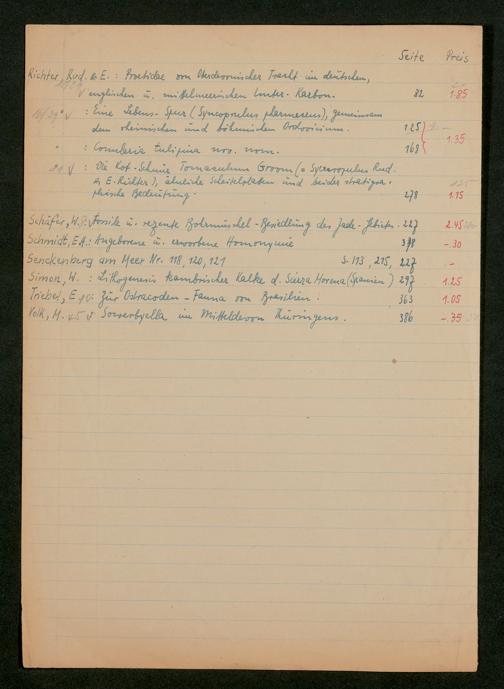 Seite Preis
Richter, Rud. & E. : Proetidae von Oberdevonischer Tracht im deutschen,
englischen u. mittelmeerischen Unter-Karbon. 82 1.85
" : Eine Lebens-Spur (Syncoprulus pharmaceus), gemeinsam
dem rheinischen und böhmischen Ordovicium. 125
1.35
" : Conularia tulipina nov. nom. 168
: Die Kot-Schnur Tomaculum Groom (= Syncoprulus Rud.
& E. Richter), ähnliche Scheitelplatten und beider stratigra-
phische Bedeutung. 278 1.15
Schäfer, W. : Fossile u. rezente Bohrmuschel-Besiedlung des Jade-Gebiets. 227 2.45
Schmidt, E.A.: Angeborene u. erworbene Homonymie 378 -.30
Senckenberg am Meer Nr. 118, 120, 121 S. 113, 215, 227 -
Simon, W. : Lithogenesis kambrischer Kalke d. Sierra Morena (Spanien) 297 1.25
Triebel, E. : Zur Ostracoden-Fauna von Brasilien. 363 1.05
Volk, M. Sowerbyella im Mitteldevon Thüringens. 386 -.35